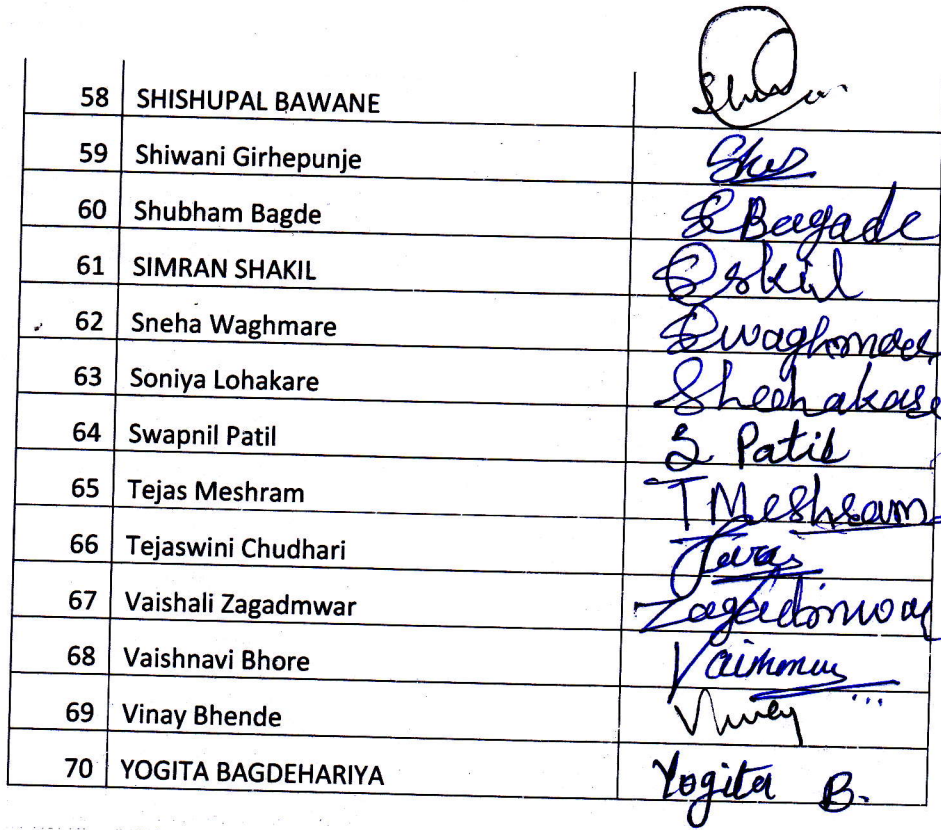 58 SHISHUPAL BAWANE
59 Shiwani Girhepunje
60 Shubham Bagde S Bagade
61 SIMRAN SHAKIL
62 Sneha Waghmare Swaghmare
63 Soniya Lohakare
64 Swapnil Patil S Patil
65 Tejas Meshram T Meshram
66 Tejaswini Chudhari
67 Vaishali Zagadmwar Zagadmwar
68 Vaishnavi Bhore
69 Vinay Bhende Vinay
70 YOGITA BAGDEHARIYA Yogita B.